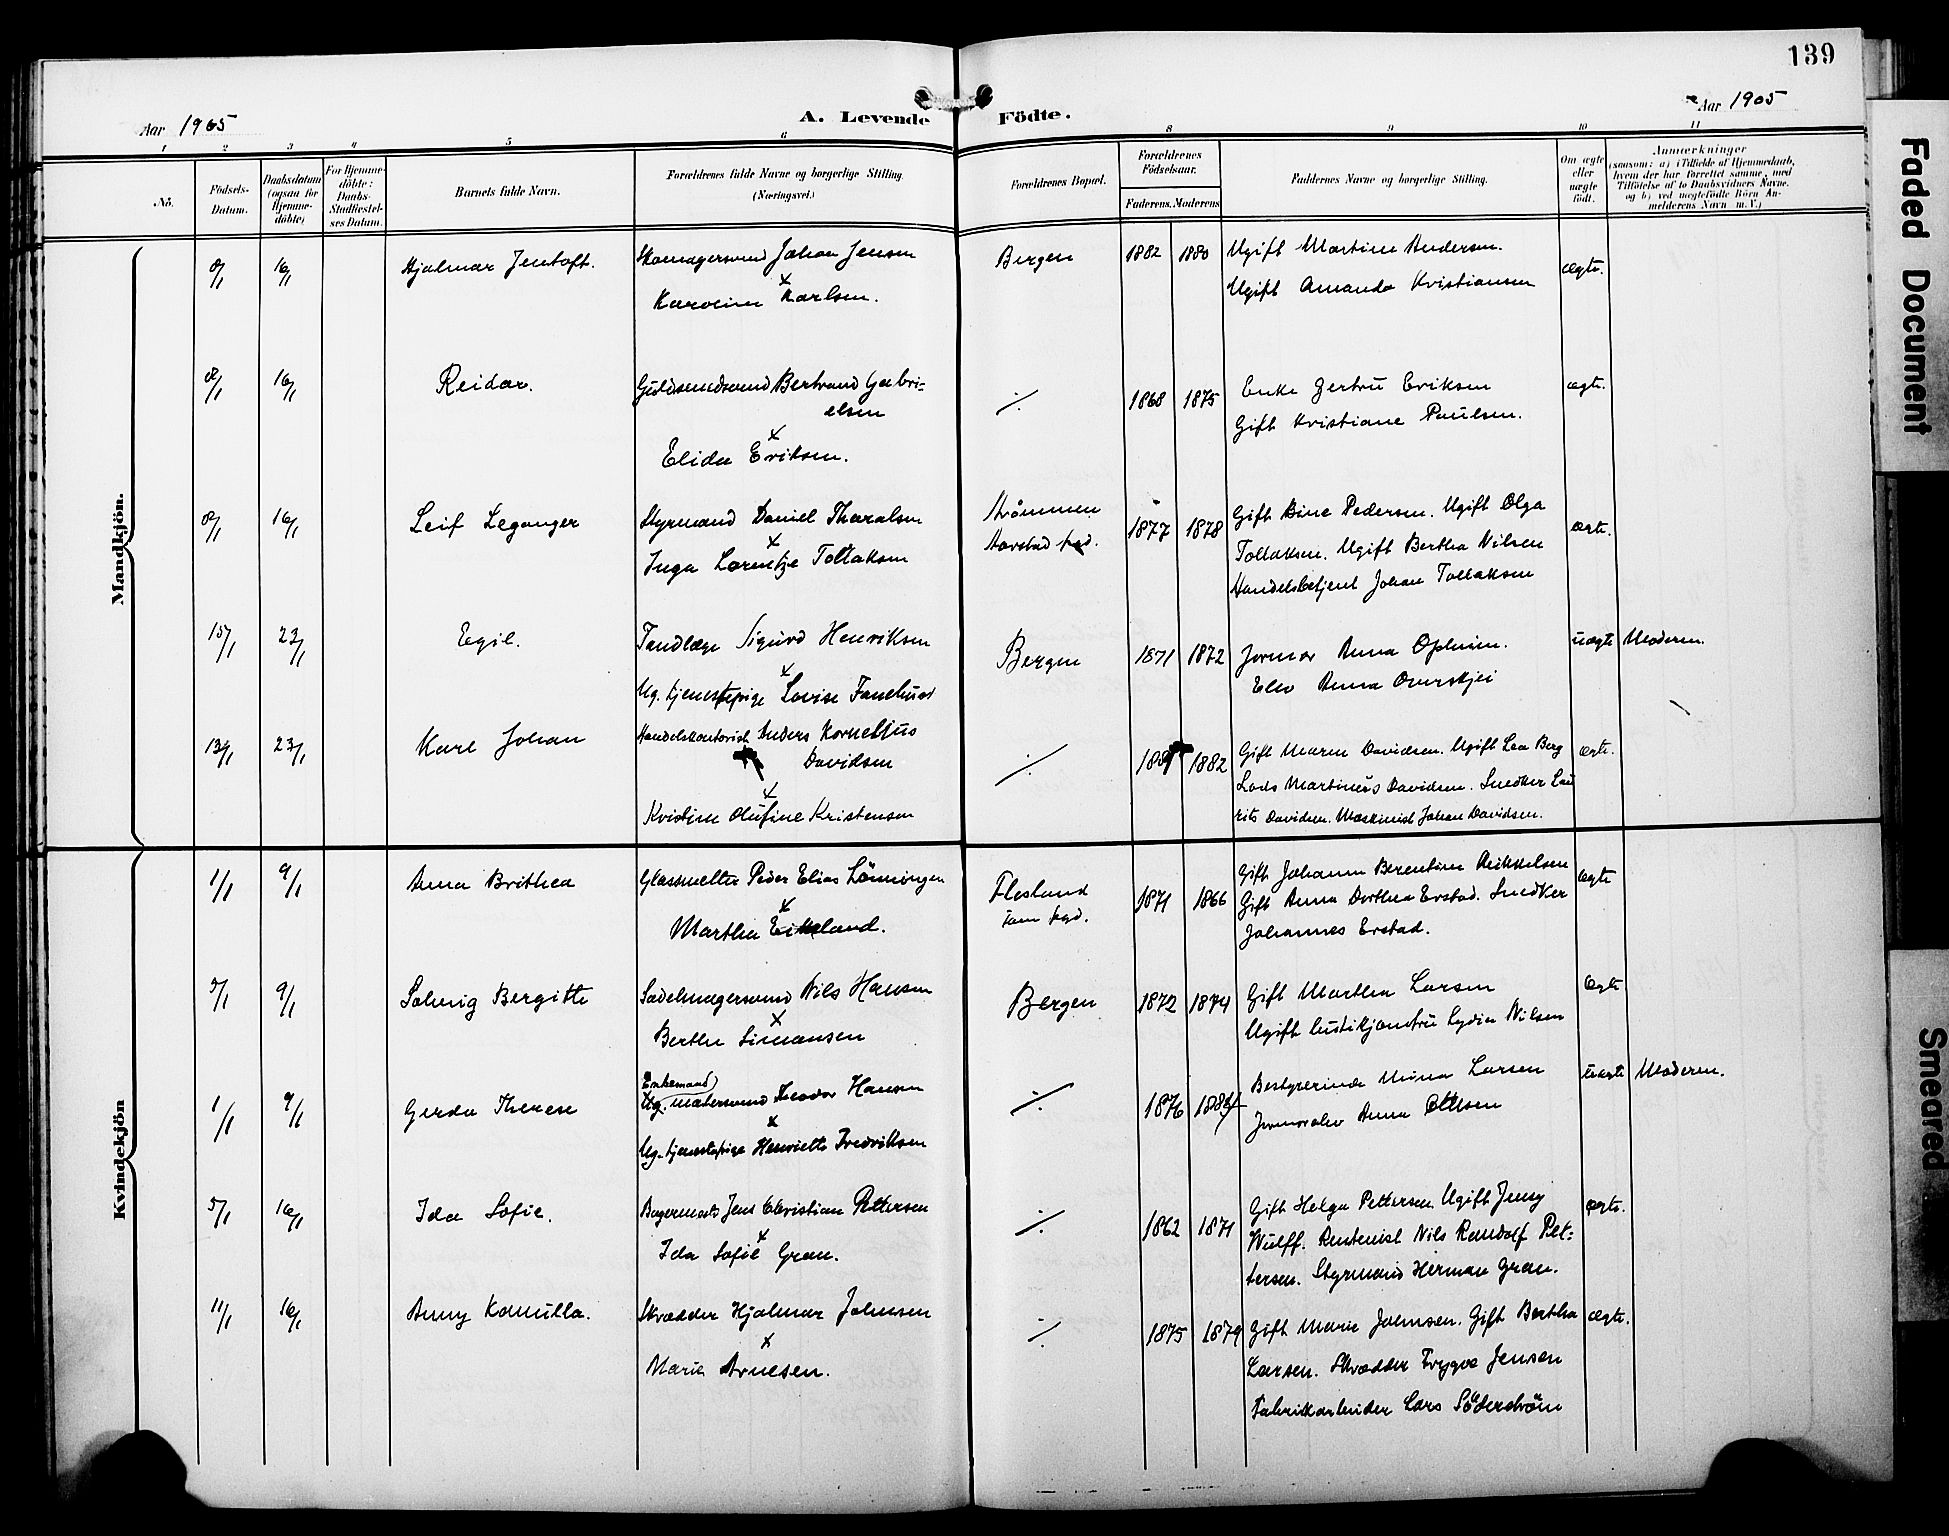 139
Aar 1905
A. Levende Födte.
Aar 1905
1 2 3 4 5 6 8 9 10 11
No.
Födsels-Datum.
Daabsdatum (ogsaa for Hjemme-döbte)
For Hjemme-döbte: Daabs-Stadfæstel-ses Datum.
Barnets fulde Navn.
Forældrenes fulde Navne og borgerlige Stilling. (Næringsvei.)
Forældrenes Bopæl.
Forældrenes Födselsaar.
Faderens. Moderens
Faddernes Navne og borgerlige Stilling.
Om ægte eller uægte födt.
Anmærkninger
(saasom: a) i Tilfælde af Hjemmedaab,
hvem der har forrettet samme, med
Tilföielse af to Daabsvidners Navne.
og b) ved uægtefödte Börn An-
melderens Navn m. V.)
Mandkjön.
8/1 16/1 Hjalmar Jentoft. Skomagersvend Johan Jensen Bergen 1882 1880 Ugift Martine Andersen. ægte.
x
Karoline Karlsen. Ugift Amanda Kristiansen
8/1 16/1 Reidar. Guldsmedsvend Bertrand Gabri- ./. 1868 1875 Enke Jertru Eriksen ægte.
elsen Gift Kristiane Paulsen.
x
Elida Eriksen.
8/1 16/1 Leif Leganger Styrmand Daniel Tharalsen Strömmen 1877 1878 Gift Bine Pedersen. Ugift Olga ægte.
x Aarstad pgd. Tollaksen. Ugift Bertha Nilsen
Inga Lorentze Tollaksen Handelsbetjent Johan Tollaksen
15/1 23/1 Egil. Tandlæge Sigurd Henriksen Bergen 1871 1872 Jormor Anna Opheim. uægte Moderen.
x
Ug. tjenestepige Lovise Elev Anna
13/1 23/1 Karl Johan Handelskontorist Anders Kornelius ./. 1882 Gift Maren Davidsen. Ugift Lea Berg ægte.
Davidsen Lods Martinus Davidsen. Snedker Lau
x
Kristine Olufine Kristensen rits Davidsen. Maskinist Johan Davidsen.
Kvindekjön
1/1 9/1 Anna Brithea Glassmelter Peder Elias Lönningen Flesland 1871 1866 Gift Johanna Berentine Mikkelsen ægte
x Fane pgd. Gift Anna Dorthea Erstad. Snedker
Martha Eikeland. Johannes Erstad.
5/1 9/1 Solveig Bergitte Sadelmagersvend Nils Hansen Bergen 1872 1874 Gift Martha Larsen ægte
x
Berthe Simonsen Ugift Lydia Nilsen
1/1 9/1 Gerda Therese Enkemand ./. 1876 Bestyrerinde Mina Larsen uægte Moderen.
Ug. malersvend Teodor Hansen
x Jormorelev Anna Ottesen
Ug. tjenestepige Henriette Fredriksen
5/1 16/1 Ida Sofie. Bagermester Jens Christian Pettersen ./. 1862 1871 Gift Helga Pettersen Ugift Jenny ægte.
x Wulff. Rentenist Nils Randolf Pet-
Ida Sofie Gran. tersen. Styrmand Herman Gran.
11/1 16/1 Anny Kamilla. Skrædder Hjalmar Johnsen ./. 1875 1879 Gift Marie Johnsen. Gift Bertha ægte.
x Larsen. Skrædder Trygve Jensen
Marie Arnesen. Fabrikarbeider Lars Söderström
Faded Document
Smeared